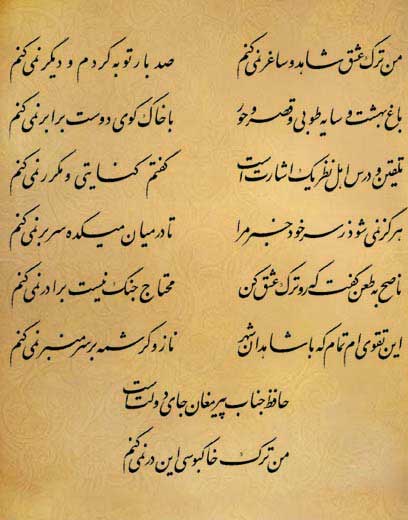 من ترک عشق شاهد و ساغر نمی کنم صد بار توبه کردم و دیگر نمی کنم
باغ بهشت و سایه طوبی و قصر و حور با خاک کوی دوست برابر نمی کنم
تلقین و درس اهل نظر یک اشارت است گفتم کنایتی و مکرر نمی کنم
هرگز نمی شود ز سر خود خبر مرا تا در میان میکده سر بر نمی کنم
ناصح به طعن گفت که رو ترک عشق کن محتاج جنگ نیست برادر نمی کنم
این تقوی ام تمام که با شاهدان شهر ناز و کرشمه بر سر منبر نمی کنم
حافظ جناب پیر مغان جای دولت است
من ترک خاکبوسی این در نمی کنم